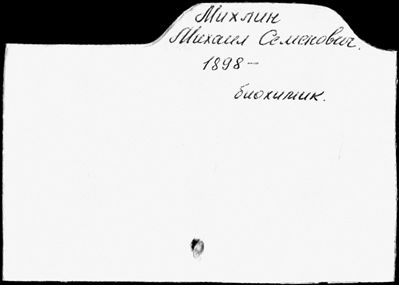 Михлин
Михаил Семенович.
1898-
биохимик.